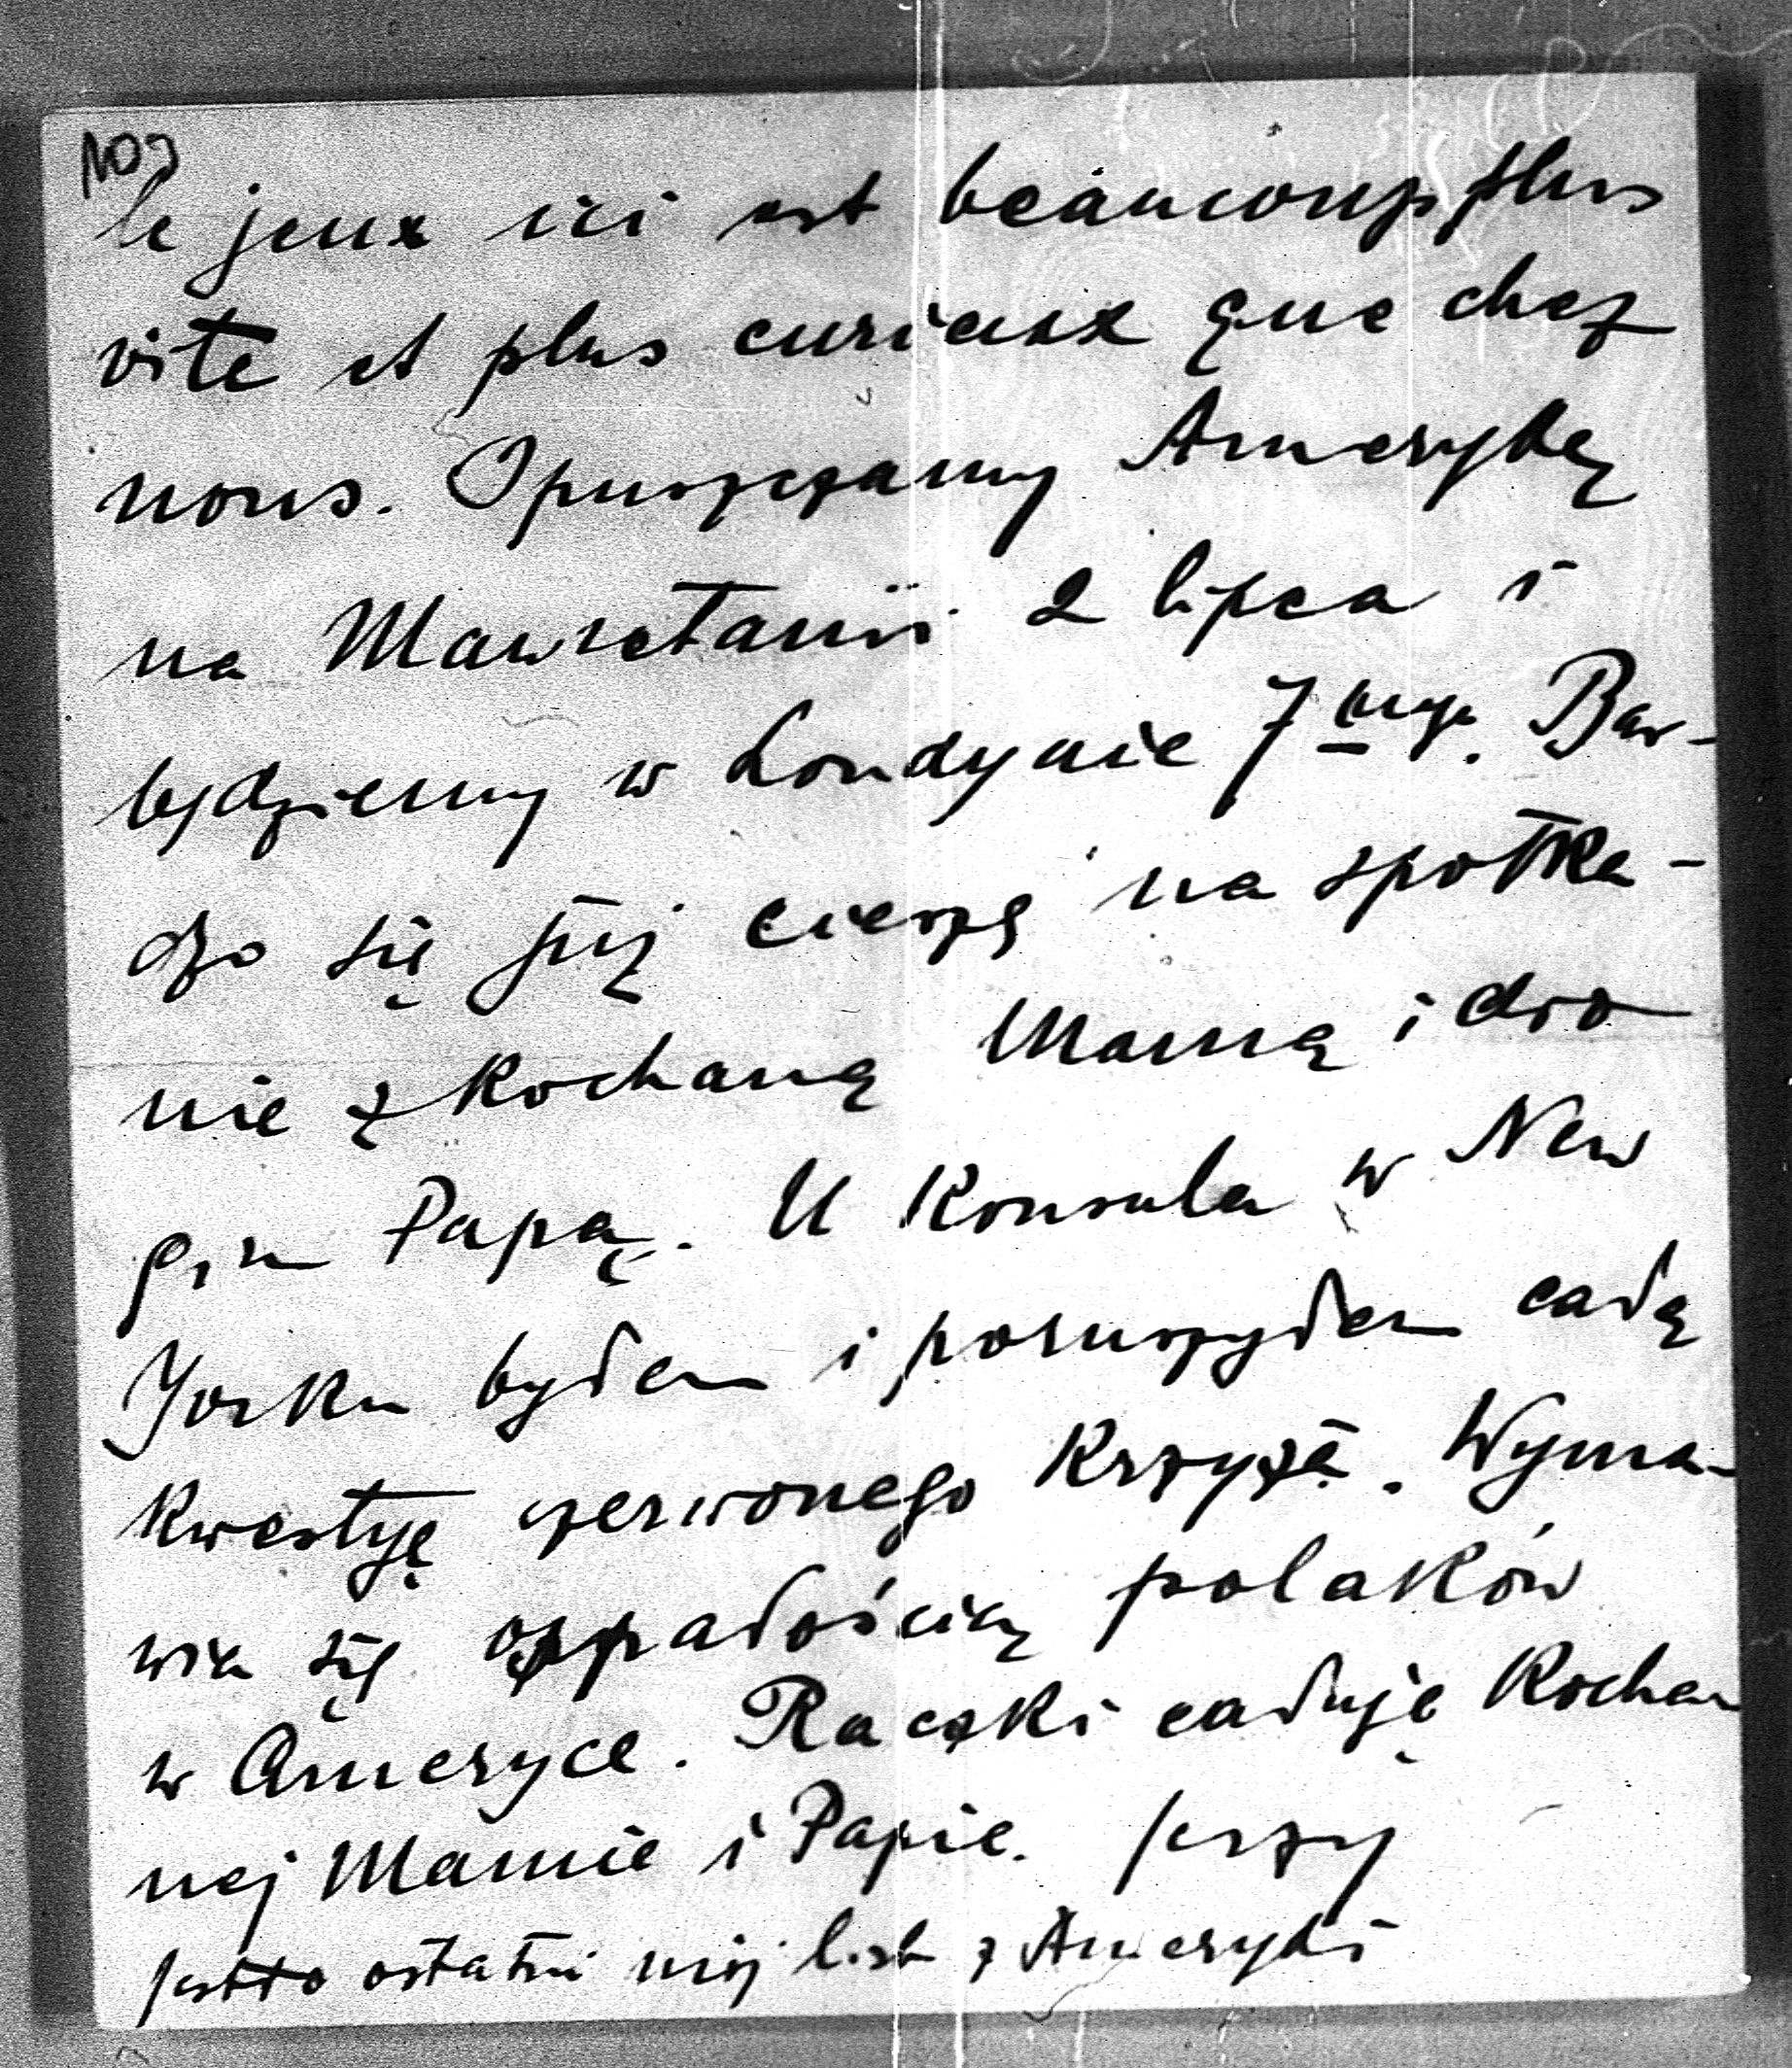 le jeux ici est beaucoup plus
vite et plus curieux que chez
nous. Opuszczamy Amerykę
na Mawretanii 2 lipca i
będziemy w Londynie 7mgo. Bar-
dzo się już cieszę na spotka-
nie z kochaną Mamą i dro
gim Papą. U Konsula w New
Yorku byłem i poruszyłem całą
kwestyę czerwonego Krzyża. Wyma-
wia się ospałością polaków
w Ameryce. Rączki całuję Kocha
nej Mamie i Papie. Jerzy
Jestto ostatni mój list z Ameryki